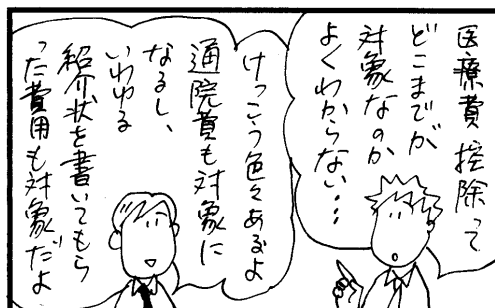 医療費控除って
どこまでが
対象なのか
よくわからない…
けっこう色々あるよ
通院費も対象に
なるし、
いわゆる
紹介状を書いてもら
った費用も対象だよ